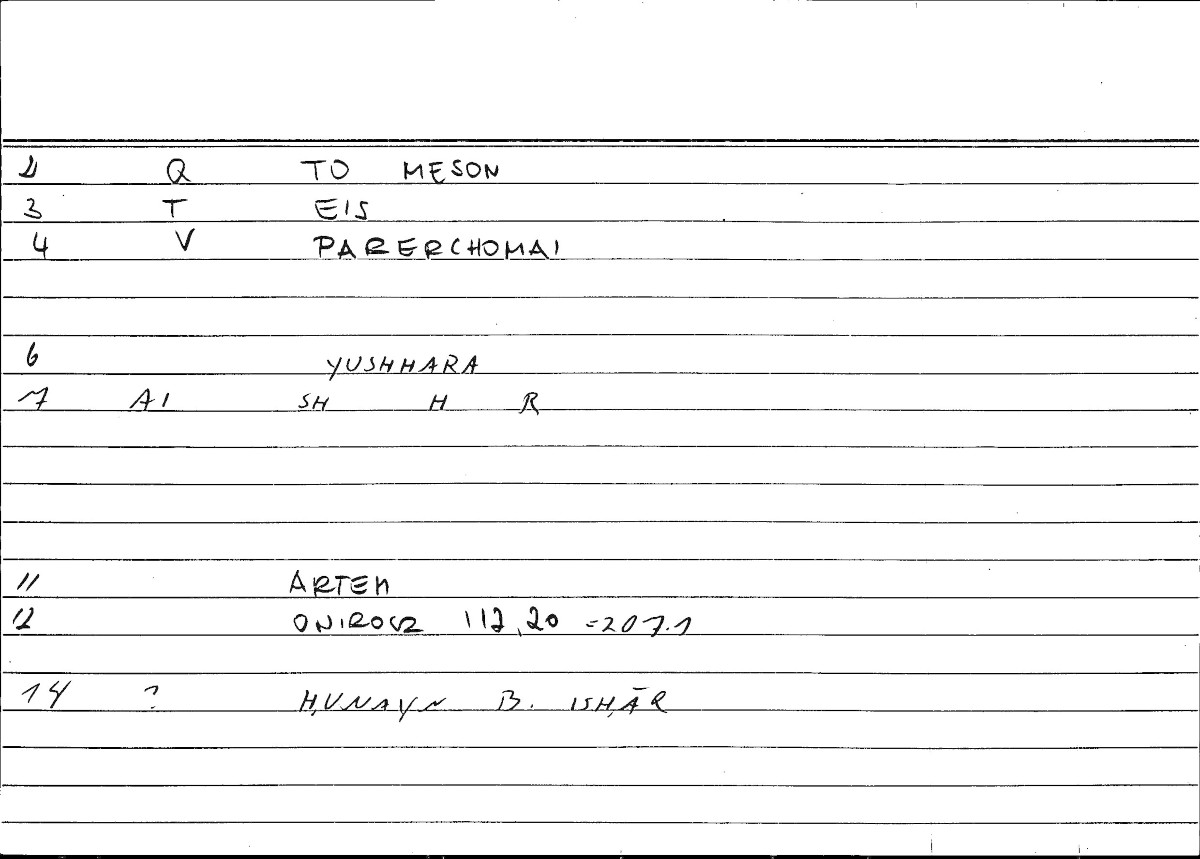 2 Q TO MESON
3 T EIS
4 V PARERCHOMAI
6 YUSHHARA
7 A1 SH H R
11 ARTEM
12 ONIROCR 112,20 =207.1
14 ? H,UNAYN B. ISH,ĀQ